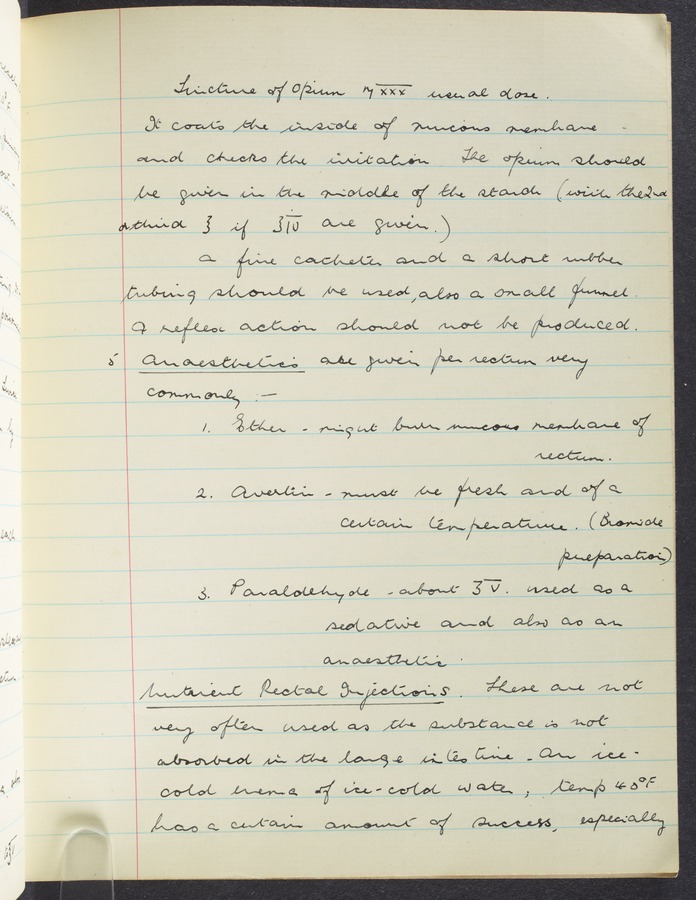 Tincture of Opium ♏ xxx usual dose.
It coats the inside of mucous membrane
and checks the irritation The opium should
be given in the middle of the starch (with the 2nd
or third ℥ if ℥IV are given.)
a fine catheter and a short rubber
tubing should be used, also a small funnel.
A reflex action should not be produced.
5 Anaesthetics are given per rectum very
commonly :-
1. Ether - might burn mucous membrane of
rectum.
2. Avertin - must be fresh and of a
certain temperature. (Bromide
preparation)
3. Paraldehyde - about ʒV. used as a
sedative and also as an
anaesthetic.
Nutrient Rectal Injections. These are not
very often used as the substance is not
absorbed in the large intestine. An ice-
cold enema of ice-cold water, temp 40°F
has a certain amount of success, especially